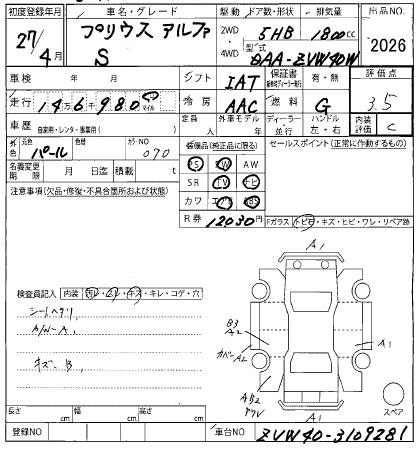 初度登録年月 車名・グレード 駆動 ドア数・形状 排気量 出品NO.
27/4月 プリウス アルファ S 2WD・4WD 5HB 1800cc 2026
型式 DAA-ZVW40W
車検 年 月 シフト IAT 保証書 有・無 評価点
走行 146,980 マイル 冷房 AAC 燃料 G 3.5
車歴 自家用・レンタ・事業用( ) 定員 人 外車モデル 年 ディーラー・並行 ハンドル 左・右 内装評価 C
外色 元色 パール 色替 カラーNO 070 装備品(純正品に限る) セールスポイント(正常に作動するもの)
PS PW AW
名義変更期限 月 日迄 積載 t SR TV ナビ
注意事項(欠品・修復・不具合箇所および状態) カワ エアB ABS
R券 12030円 Fガラス トビ石・キズ・ヒビ・ワレ・リペア跡
A1
検査員記入 内装 汚レ・スレ・キズ・キレ・コゲ・穴
シートヘタリ
A/W-A、
キズ-B、
B3
A2
カバーA2
A1
AB2
A1
スペア
長さ cm 幅 cm 高さ cm
登録NO 車台NO ZVW40-3109281